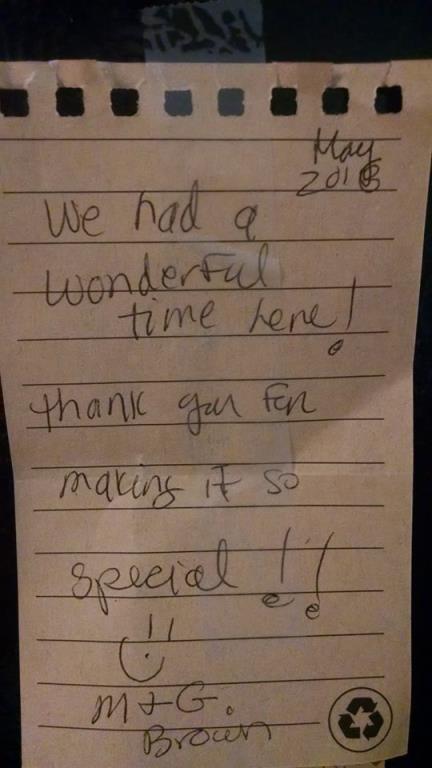 May
We had a
wonderful
time here!
thank you for
making it so
special !!
M + G.
Brown